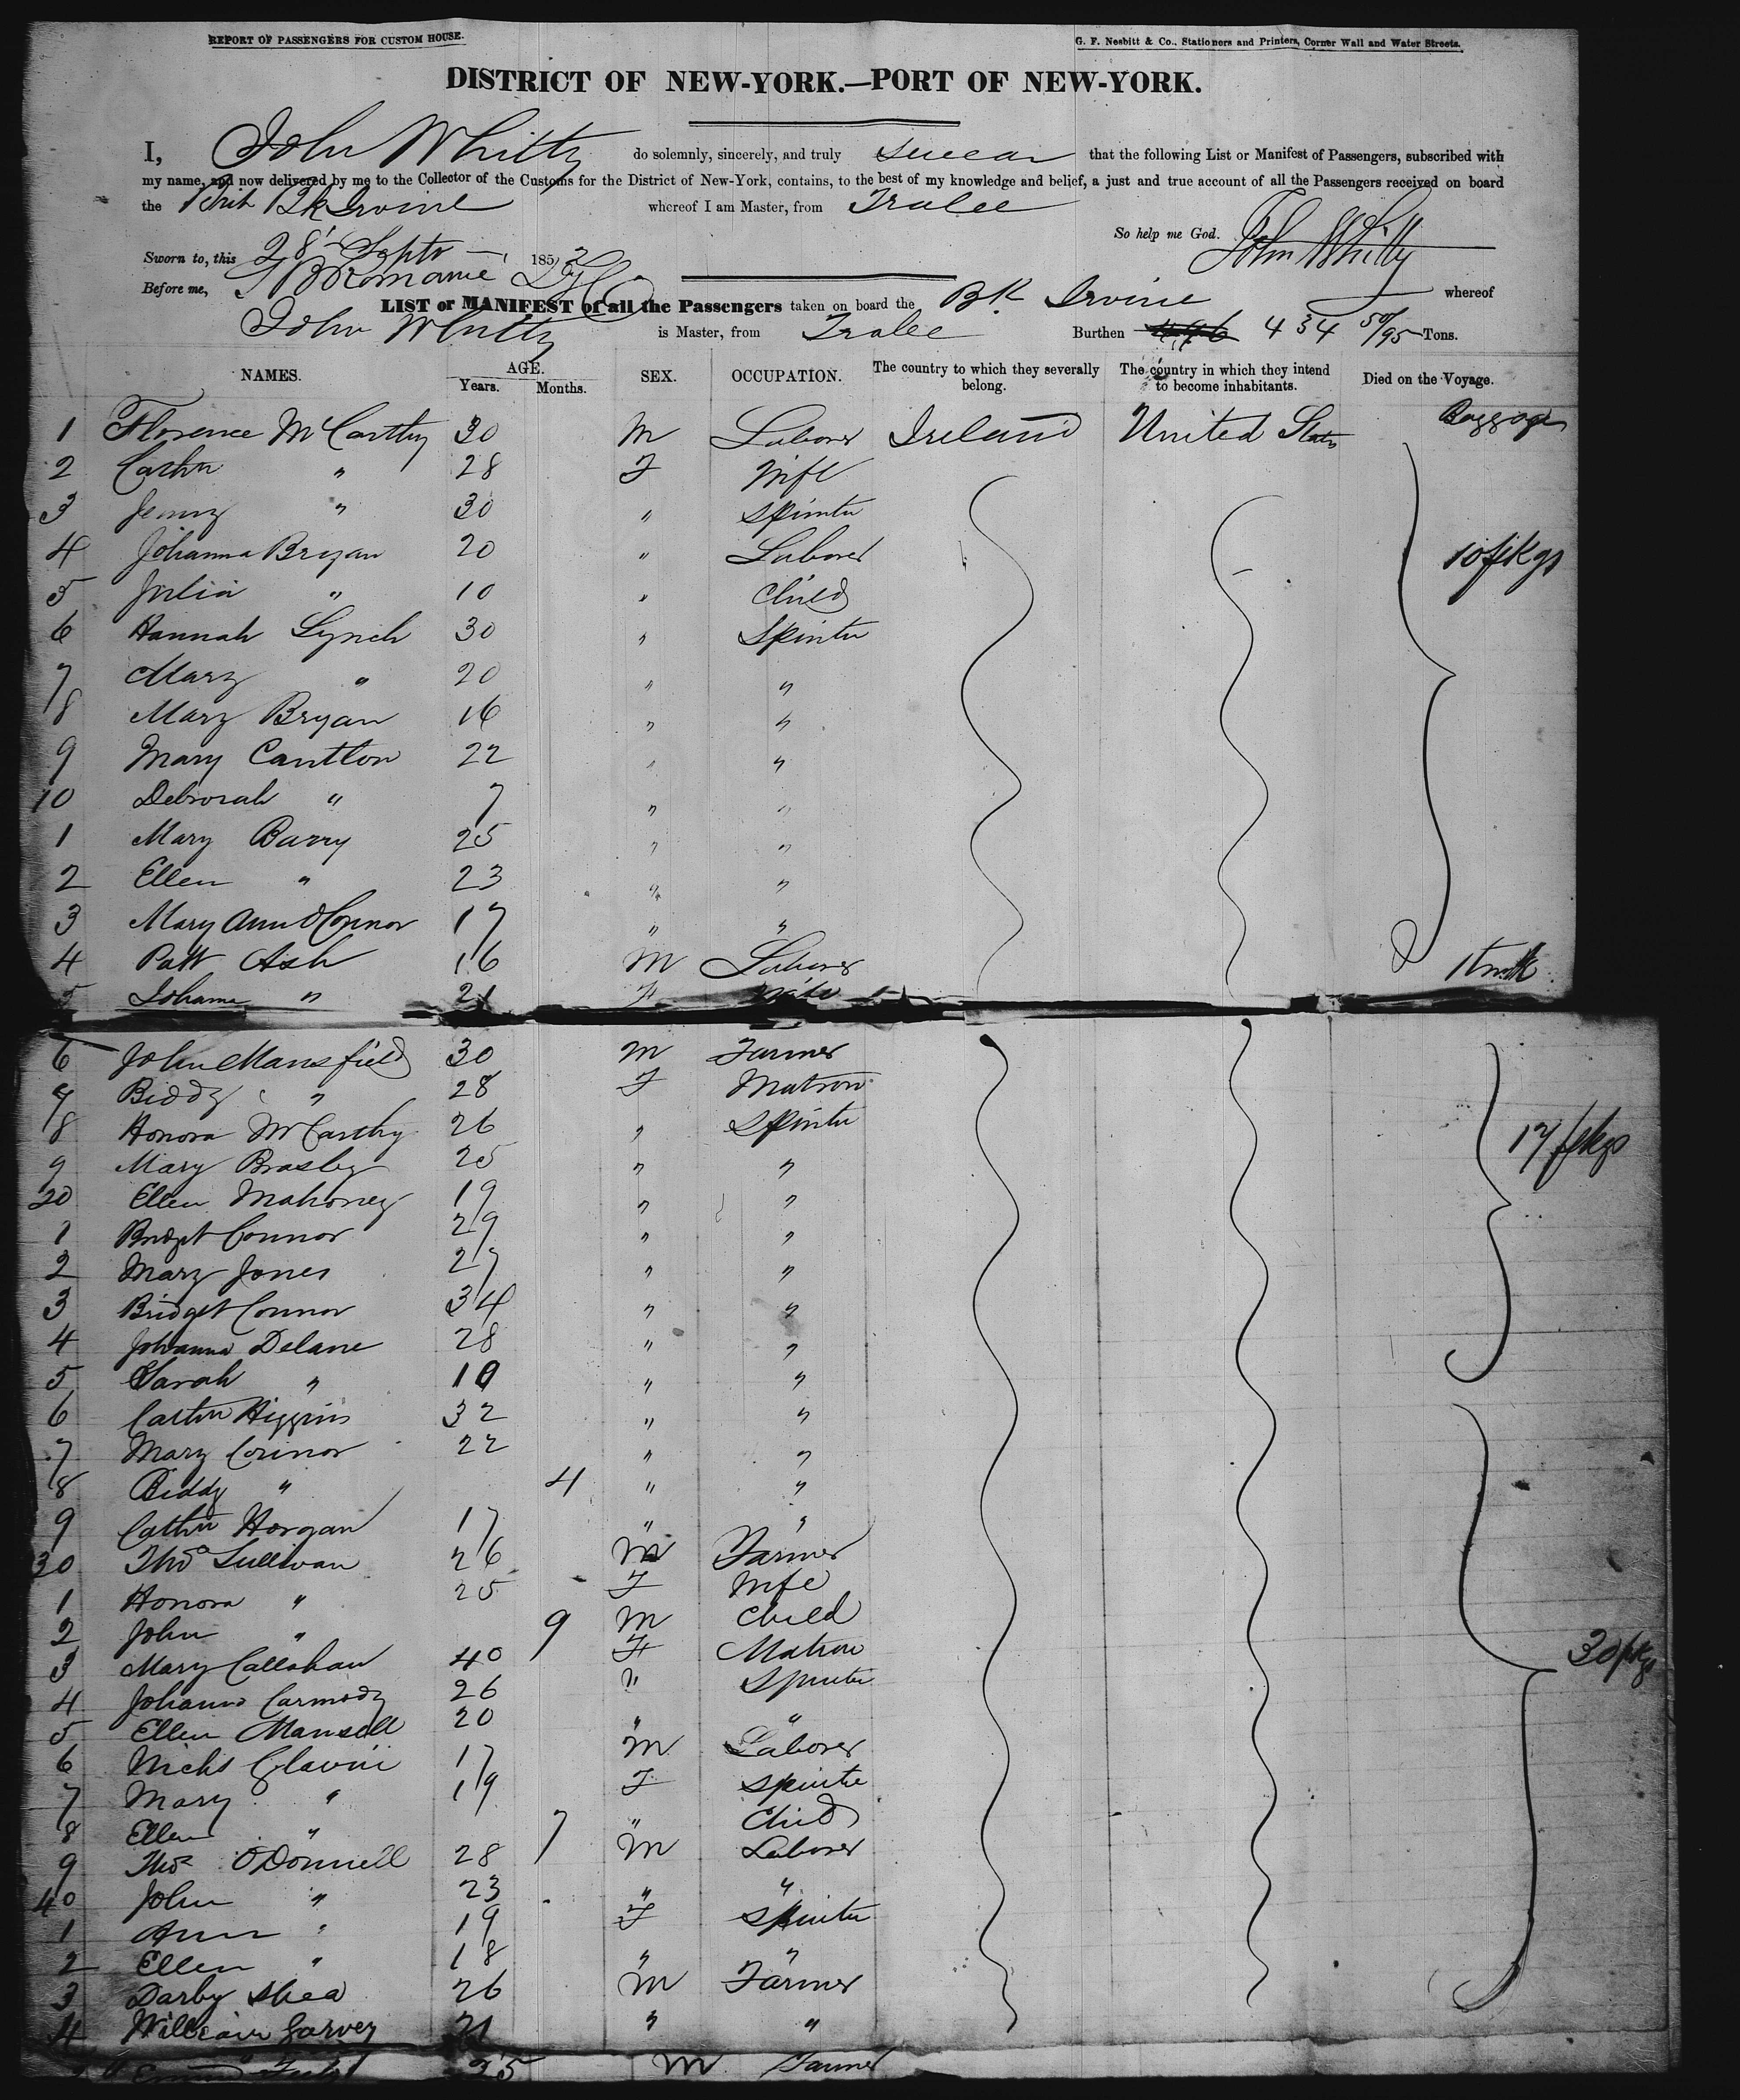 REPORT OF PASSENGERS FOR CUSTOM HOUSE. G. F. Nesbitt & Co., Stationers and Printers, Corner Wall and Water Streets.
DISTRICT OF NEW-YORK.—PORT OF NEW-YORK.
I, John Whitty do solemnly, sincerely, and truly swear that the following List or Manifest of Passengers, subscribed with
my name, and now delivered by me to the Collector of the Customs for the District of New-York, contains, to the best of my knowledge and belief, a just and true account of all the Passengers received on board
the Brit Bk Irvine whereof I am Master, from Tralee
So help me God. John Whitty
Sworn to, this 28 Septr 185
Before me,
LIST or MANIFEST of all the Passengers taken on board the Bk. Irvine whereof
John Whitty is Master, from Tralee Burthen 434 50/95 Tons.
NAMES. AGE. Years. Months. SEX. OCCUPATION. The country to which they severally belong. The country in which they intend to become inhabitants. Died on the Voyage.
1 Florence McCarthy 30 M Laborer Ireland United States Baggage
2 Cathn " 28 F Wife
3 Jenny " 30 " Spinster
4 Johanna Bryan 20 " Laborer 10 pkgs
5 Julia " 10 " Child
6 Hannah Lynch 30 " Spinster
7 Mary " 20 " "
8 Mary Bryan 16 " "
9 Mary Cantlon 22 " "
10 Deborah " 7 " "
1 Mary Barry 25 " "
2 Ellen " 23 " "
3 Mary Ann O'Connor 17 " "
4 Patt Ash 16 M Laborer
5 Johanna " 21 F Wife
6 John Mansfield 30 M Farmer
7 Biddy " 28 F Matron
8 Honora McCarthy 26 " Spinster 17 pkgs
9 Mary Brasley 25 " "
20 Ellen Mahoney 19 " "
1 Bridget Connor 29 " "
2 Mary Jones 27 " "
3 Bridget Connor 34 " "
4 Johanna Delane 28 " "
5 Sarah " 10 " "
6 Cathn Higgins 32 " "
7 Mary Connor 22 " "
8 Biddy " 4 " "
9 Cathn Horgan 17 " "
30 Thos Sullivan 26 M Farmer
1 Honora " 25 F Wife
2 John " 9 M Child
3 Mary Callahan 40 F Matron 30 pkgs
4 Johanna Carmody 26 " Spinster
5 Ellen Mansell 20 " "
6 Nichs Glavin 17 M Laborer
7 Mary " 19 F Spinster
8 Ellen " 7 " Child
9 Thos O'Donnell 28 M Laborer
40 John " 23 " "
1 Ann " 19 F Spinster
2 Ellen " 18 " "
3 Darby Shea 26 M Farmer
4 William Garvey 21 " "
25 M Farmer